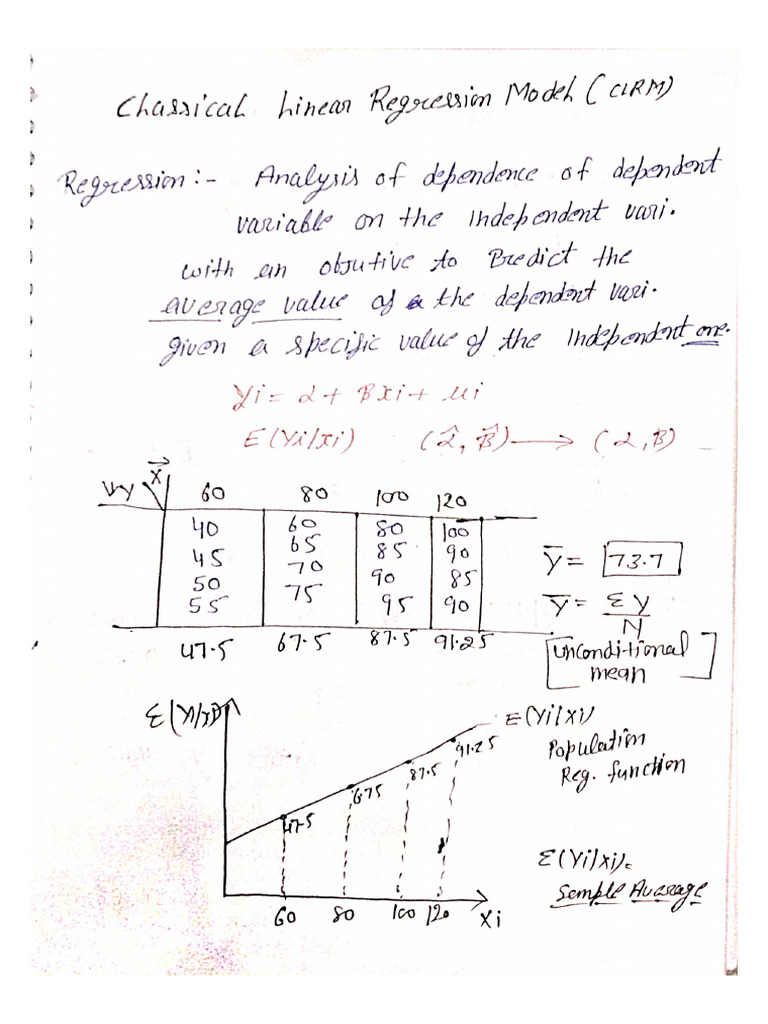 Classical Linear Regression Model (CLRM)
Regression :- Analysis of dependence of dependent
variable on the Independent vari.
with an objutive to Predict the
average value of the dependent vari.
given a specific value of the Independent one.
Yi = α + Bxi + ui
E(Yi/xi) (α̂, B̂) → (α, B)
X 60 80 100 120
40 60 80 100
45 65 85 90
50 70 90 85
55 75 95 90
47.5 67.5 87.5 91.25
Y̅ = 73.7
Y̅ = ΣY/N
[Unconditional mean]
E(Yi/xi)
E(Yi/xi)
Population
Reg. function
91.25
87.5
675
47.5
60 80 100 120 Xi
E(Yi/xi)=
Semple Average